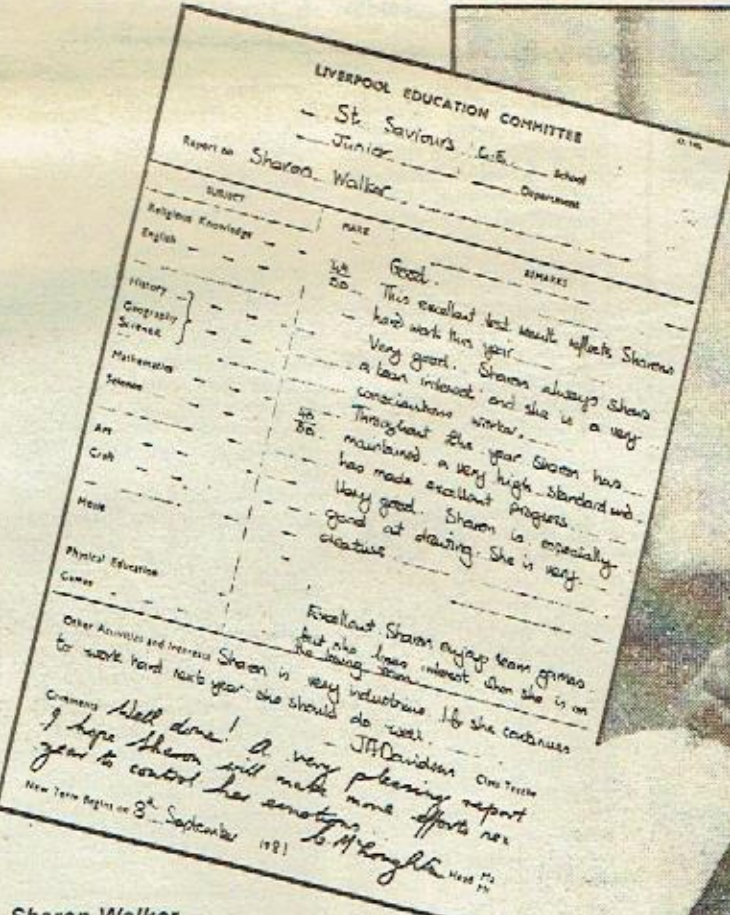 LIVERPOOL EDUCATION COMMITTEE
St. Saviours C.E. School
Junior Department
Report on Sharon Walker
SUBJECT MARK REMARKS
Religious Knowledge Good.
English 50 This excellent test result reflects Sharons
hard work this year
History Very good. Sharon always shows
Geography a keen interest and she is a very
Science conscientious worker.
Mathematics 50 Throughout the year Sharon has
Science maintained a very high standard and
has made excellent progress.
Art Very good. Sharon is especially
Craft good at drawing. She is very
creative
Music
Physical Education
Games Excellent. Sharon enjoys team games
but she loses interest when she is on
the losing team
Other Activities and Interests Sharon is very industrious. If she continues
to work hard next year she should do well.
JHDavidson Class Teacher
Comments Well done! A very pleasing report
I hope Sharon will make more efforts nex
year to control her emotions.
New Term Begins on 8th September 1981 Head
Sharon Walker